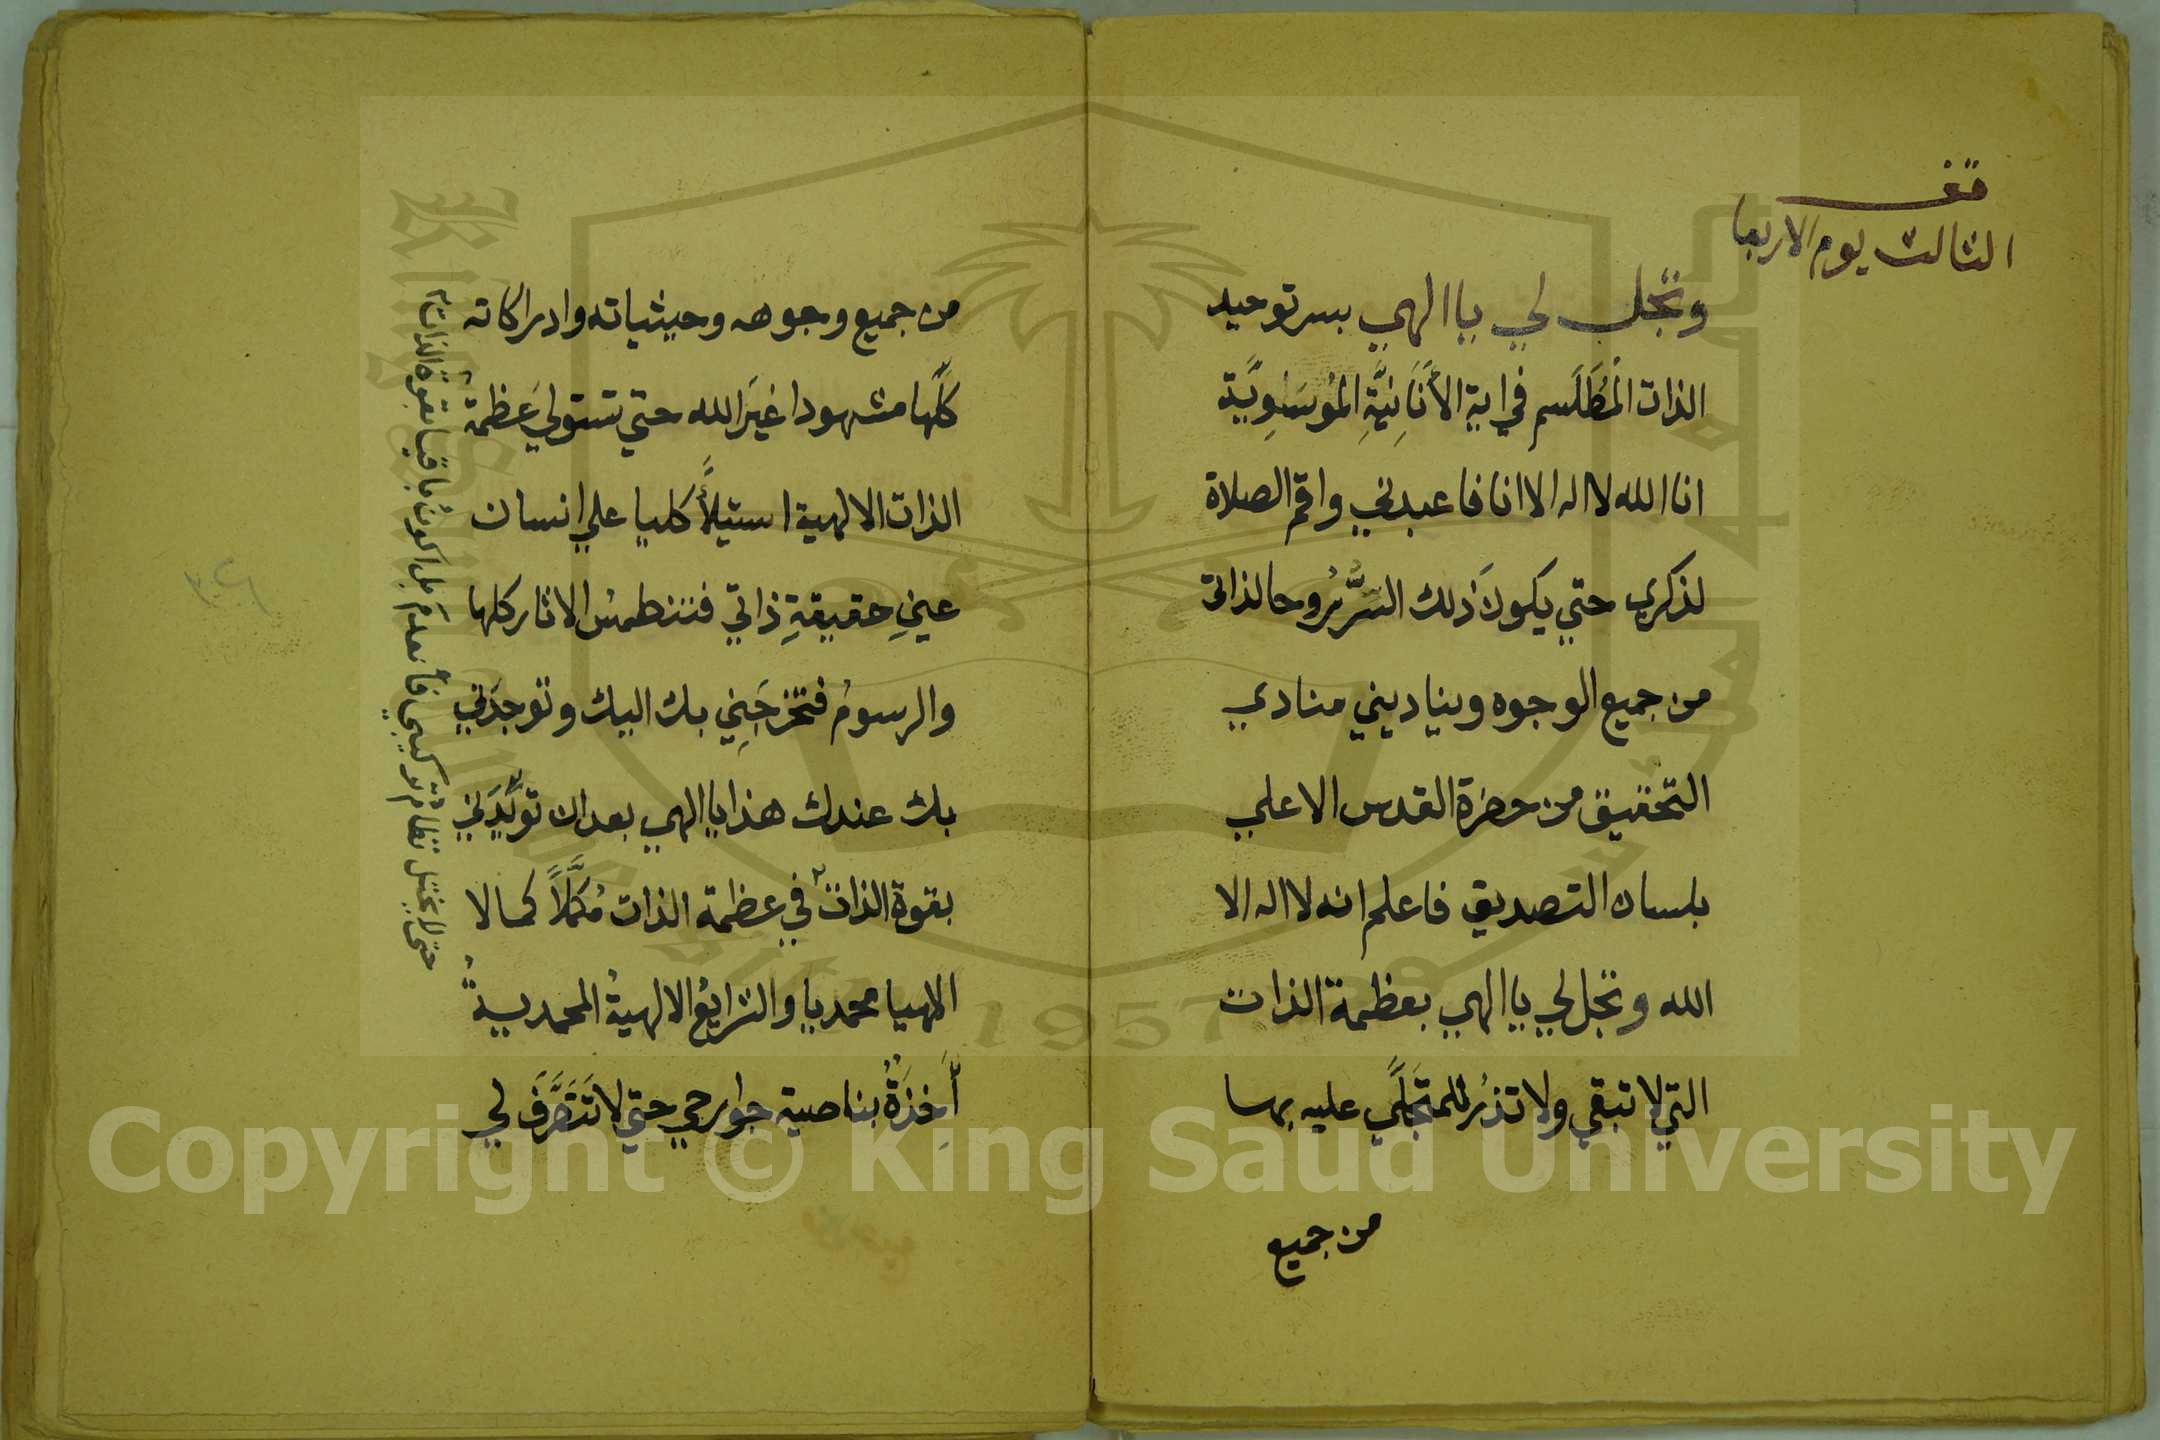 قف
الثالث يوم الاربعا
وتجلى لي يا الهي بسر توحيد
الذات المُطَلْسَم في اية الأَنَانِيَّةِ المُوسَوِيَّة
انا الله لا اله الا انا فاعبدني واقم الصلاة
لذكري حتي يكونَ ذلك السِّرُّ روحا لذاتي
من جميع الوجوه ويناديني منادي
التحقيق من حضرة القدس الاعلي
بلسان التصديق فاعلم انه لا اله الا
الله وتجل لي يا الهي بعظمة الذات
التي لا تبقي ولا تذرُ للمتجَلَّي عليه بها
من جميع
من جميع وجوهه وحيثياته وادراكاته
كلِّها مشهودا غيرَ الله حتي تستولي عَظمةُ
الذات الالهية استيلأً كليا علي انسان
عينِ حقيقةِ ذاتي فتنطمسُ الاثار كلها
والرسومُ فتخرجَنِي بك اليك وتوجدَني
بك عندك هذا يا الهي بعد ان تويِّدَني
بقوة الذات في عظمة الذات مُكمَّلاً كمالا
الهيا محمديا والشرايعُ الالهيةُ المحمديةُ
أَخِذَةٌ بناصية جوارحي حتي لا تَتَصَرَّفَ لي
حتى لا يختل نظام تركيبي فأنعدم بل اكون باقيا بقوة الذات
Copyright © King Saud University
1957